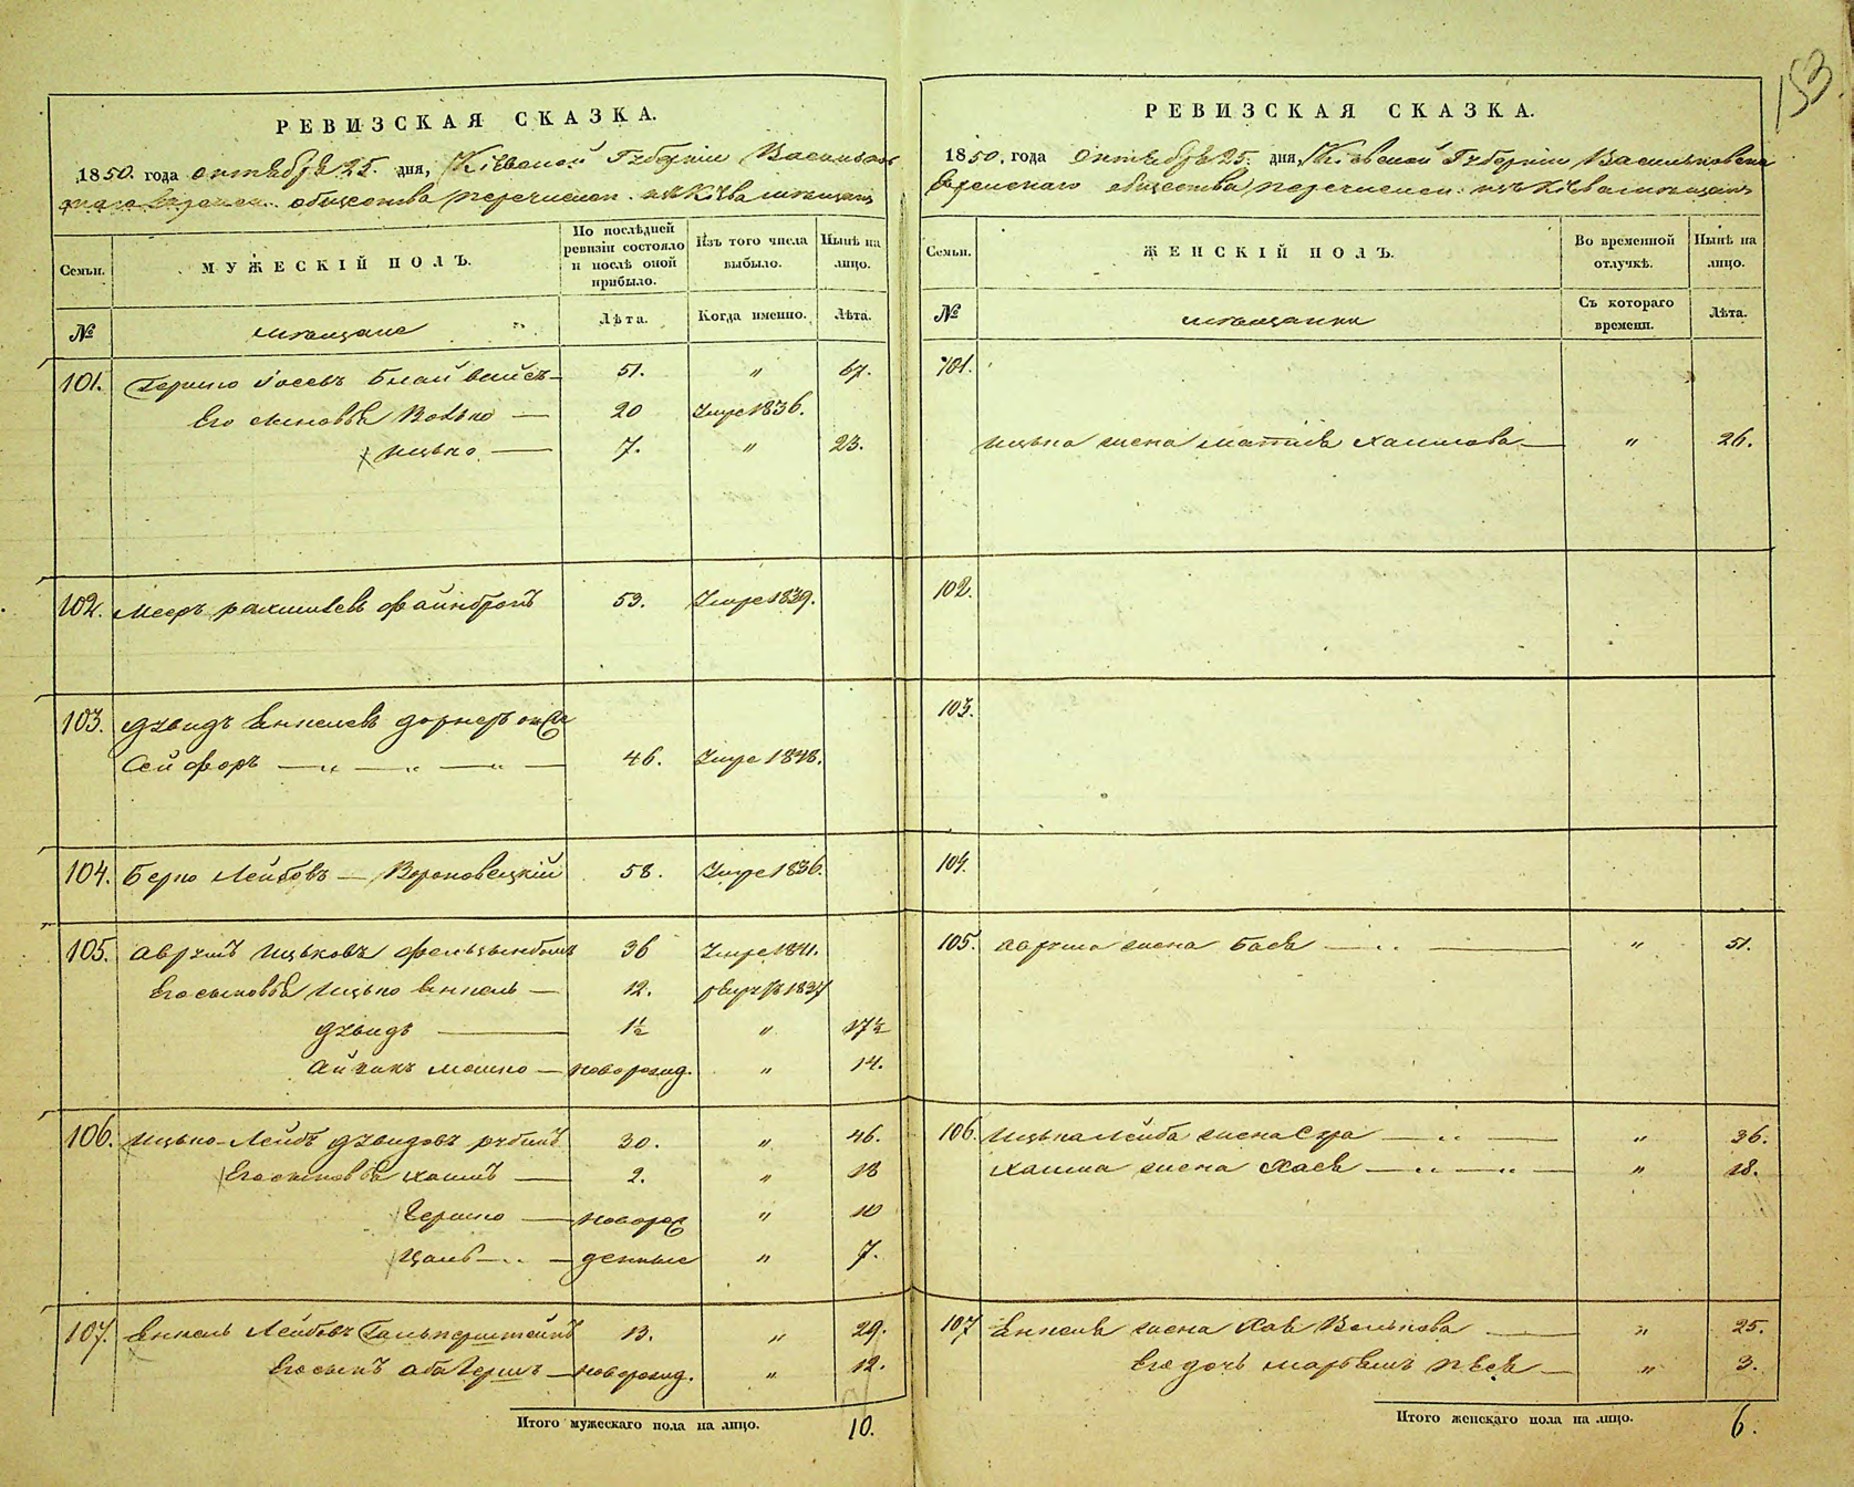 153
РЕВИЗСКАЯ СКАЗКА.
1850. года октября 25. дня, Кіевской Губерніи Васильков
скаго Еврейск. общества перечислен. изъ Кіева мѣщанъ
Семьи. МУЖЕСКІЙ ПОЛЪ. По послѣдней ревизіи состояло и послѣ оной прибыло. Изъ того числа выбыло. Нынѣ на лицо.
№ мѣщане Лѣта. Когда именно. Лѣта.
101. Гершко Іосевъ Блайвайсъ — 51. " 67.
Его сыновья Волько — 20 Умре 1836.
Ицько — 7. " 23.
102. Мееръ Рахмилевъ Файнбронъ 53. Умре 1839.
103. Дувидъ Янкелев
Сейферъ — " — " — " — 46. Умре 1848.
104. Берко Лейбовъ — Вороновецкій 58. Умре 1836.
105. Аврумъ Ицьковъ 36 Умре 1841.
Его сыновья Ицько Янкель — 12. 1837
Дувидъ — 1½ " 17½
Айзикъ Мошко — новорожд. " 14.
106. Ицько-Лейбъ Дувидовъ Рубинъ 30. " 46.
Его сыновья Хаимъ — 2. " 18
Гершко — новорож " 10
Цаль — " — денные " 7.
107. Янкель Лейбовъ Гальперштейнъ 13. " 29.
Его сынъ Аба Гершъ — новорожд. " 12.
Итого мужескаго пола на лицо. 10.
РЕВИЗСКАЯ СКАЗКА.
1850. года октября 25. дня, Кіевской Губерніи Васильковска
Еврейскаго общества перечислен. изъ Кіева мѣщанъ
Семьи. ЖЕНСКІЙ ПОЛЪ. Во временной отлучкѣ. Нынѣ на лицо.
№ мѣщанки Съ котораго времени. Лѣта.
101.
Ицька жена Хаимова — " 26.
102.
103.
104.
105. Аврума жена Бася — " — " 51.
106. Ицька Лейба жена Сура — " — " 36.
Хаима жена Хая — " — " — " 18.
107 Янкеля жена Хая Волькова — " 25.
Его дочь Песя — " 3.
Итого женскаго пола на лицо. 6.